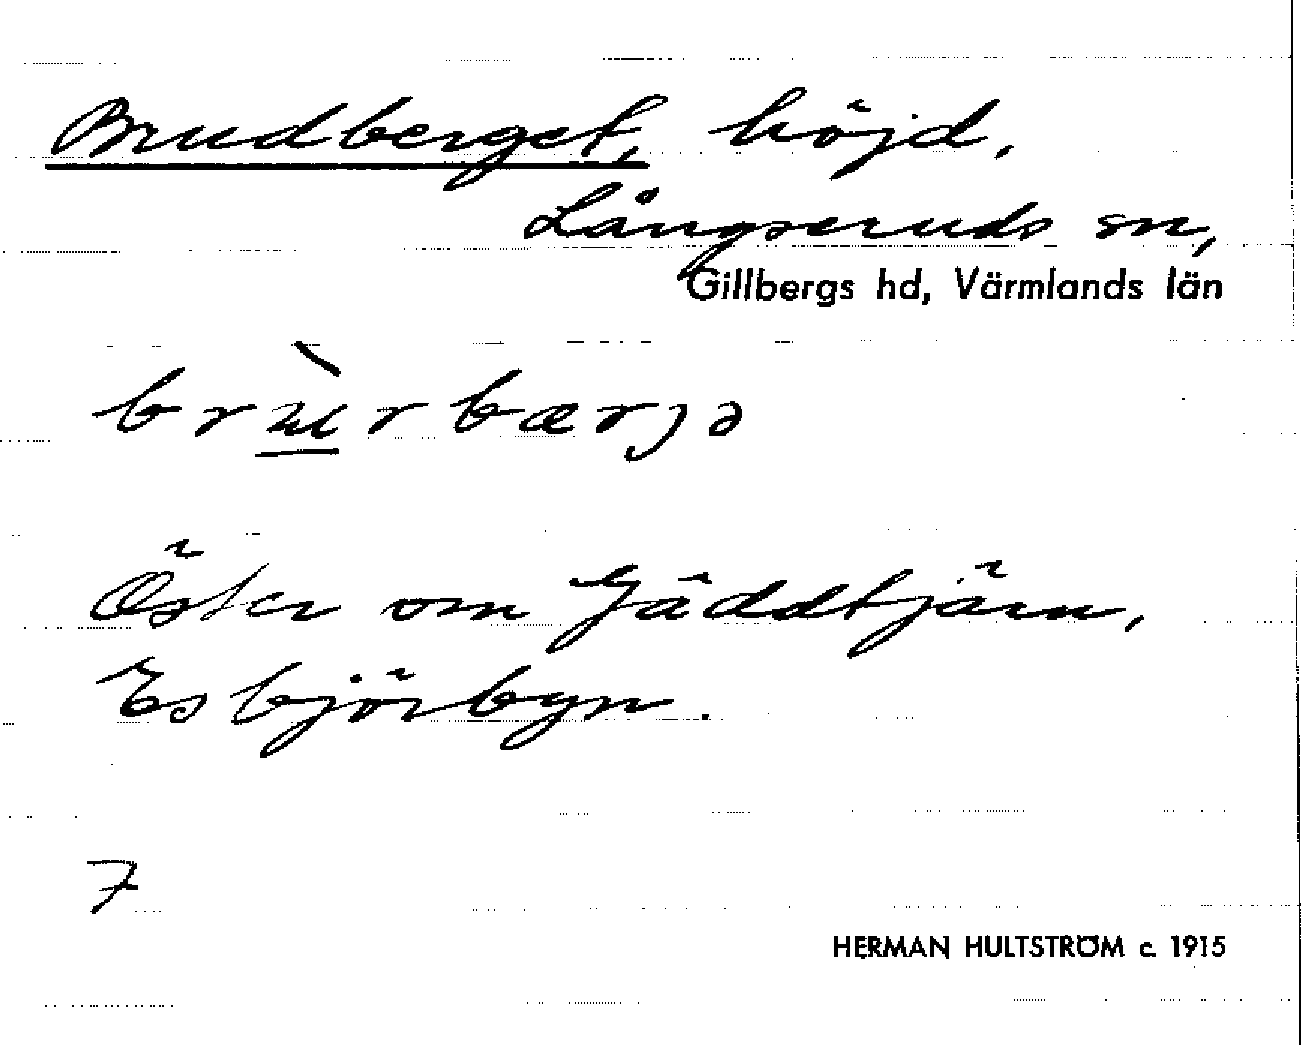 Brudberget, höjd.
Långseruds sn,
Gillbergs hd, Värmlands län
brùrbærjə
Öster om Gäddtjärn,
Esbjörbyn.
7
HERMAN HULTSTRÖM c. 1915